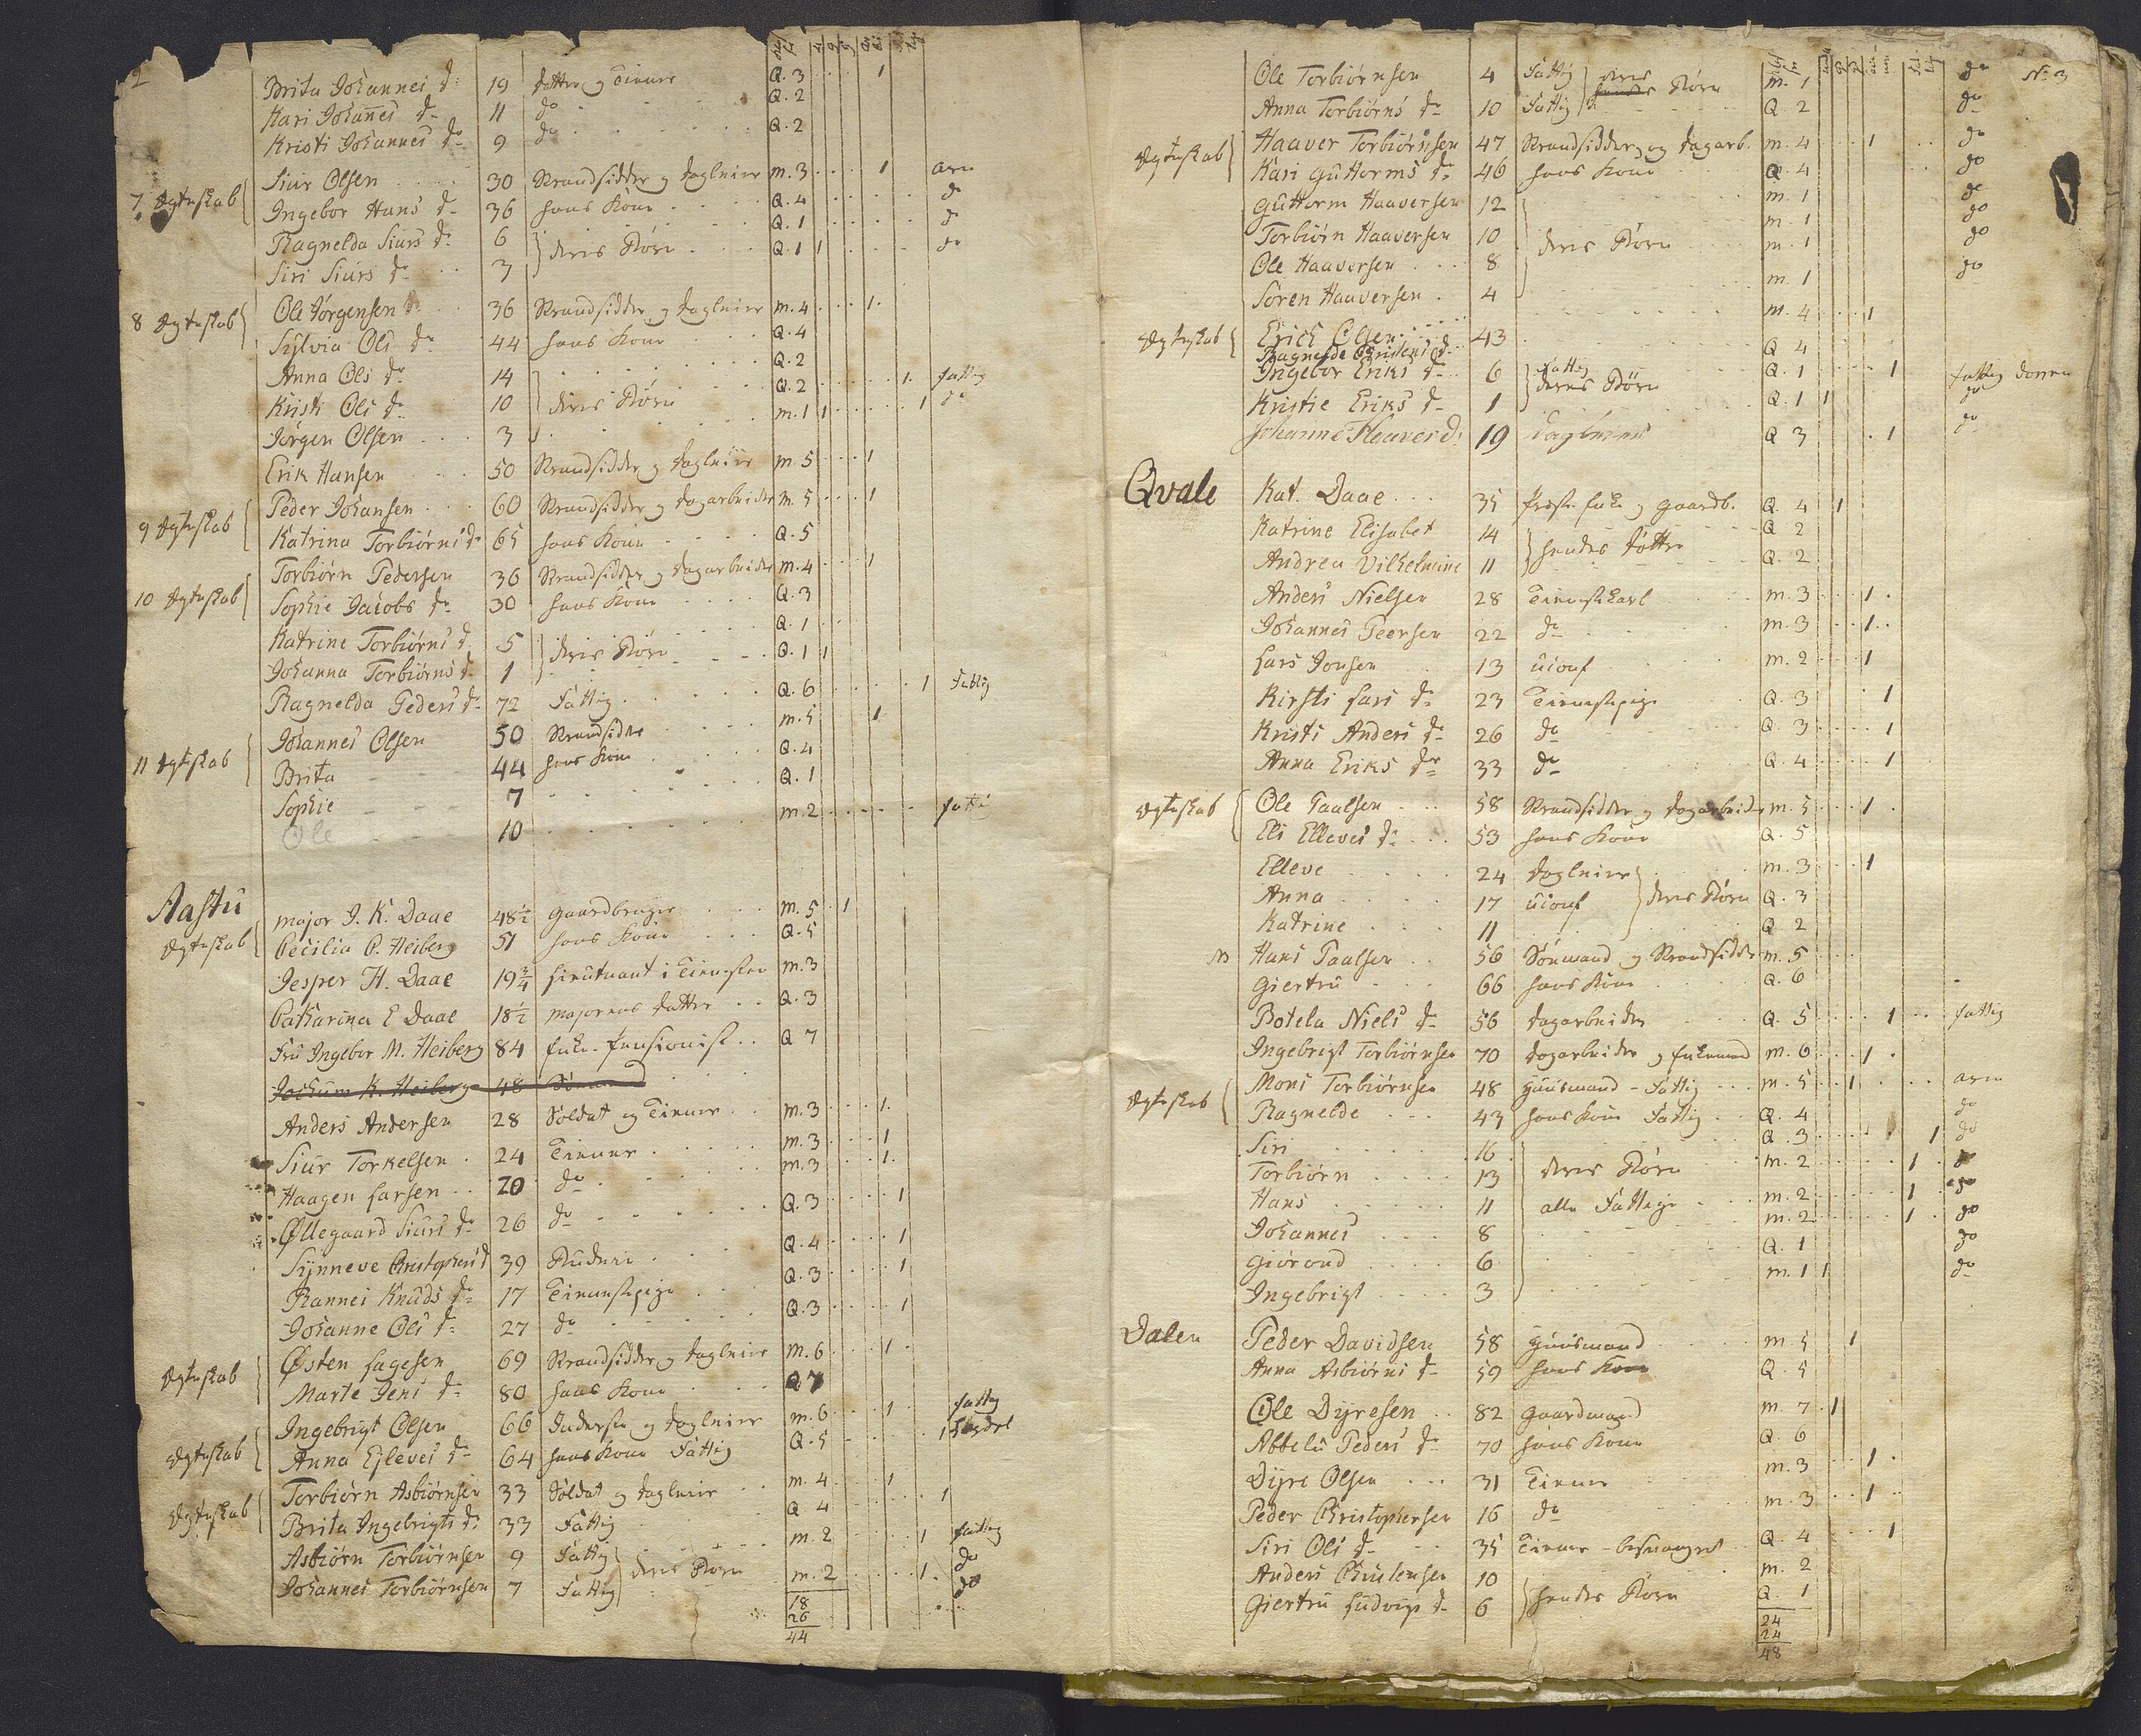 2
Brita Johannes D. 19 datter og Tiener Q. 3 1
Kari Johannes D. 11 do Q. 2
Kristi Johannes D. 9 do Q. 2
Siur Olsen 30 Strandsidder og dagleier m. 3 1 arm
7 Ægteskab Ingebor Hans D. 36 hans Kone Q. 4 do
Ragnelda Siurs D. 6 Q. 1 do
deres Børn
Siri Siurs D. 3 Q. 1 1 do
8 Ægteskab Ole Jørgensen 36 Strandsidder og dagleier m. 4 1
Sylvia Ols D. 44 hans Kone Q. 4
Anna Ols D. 14 Q. 2
Kristi Ols D. 10 deres Børn Q. 2 1 fattig
Jørgen Olsen 3 m. 1 1 1 do
Erik Hansen 50 Strandsidder og dagleier m. 5 1
9 Ægteskab Peder Johansen 60 Strandsidder og dagarbeider m. 5 1
Katrina Torbiørns D. 65 hans Kone Q. 5
Torbiørn Pedersen 36 Strandsidder og dagarbeider m. 4 1
10 Ægteskab Sophie Jacobs D. 30 hans Kone Q. 3
Katrine Torbiørns D. 5 Q. 1
deres Børn
Johanna Torbiørns D. 1 Q. 1 1
Ragnelda Peders D. 72 Fattig Q. 6 1 Fattig
Johannes Olsen 50 Strandsidder m. 5 1
11 Ægteskab Brita 44 hans Kone Q. 4
Sophie 7 Q. 1
Ole 10 m. 2 fattig
Aastu
major J. K. Daae 48½ Gaardbruger m. 5 1
Ægteskab Cecilia C. Heiberg 51 hans Kone Q. 5
Jesper H. Daae 19¾ Lieutnant i Tienesten m. 3
Catharina E Daae 18½ majorens datter Q. 3
Fru Ingebor M. Heiberg 84 Enke-Pensionist Q 7
Jochum K. Heiberg 48 Sømand
Anders Andersen 28 Soldat og Tiener m. 3 1
Siur Torkelsen 24 Tiener m. 3 1
Haagen Larsen 20 do m. 3 1
Øllegaard Siurs D. 26 do Q. 3 1
Synneve Christophers D 39 Q. 4 1
Rannei Knuds D. 17 Tienestepige Q. 3 1
Johanne Ols D. 27 do Q. 3 1
Ægteskab Østen Lagesen 69 Strandsidder og dagleier m. 6 1
Marte Jens D. 80 hans Kone Q 7
Ingebrigt Olsen 66 Inderste og dagleier m. 6 1 fattig
Ægteskab Anna Ejleves D. 64 hans Kone Fattig Q. 5 1
Torbiørn Asbiørnsen 33 Soldat og dagleier m. 4 1
Ægteskab Brita Ingebrigts D. 33 Fattig Q 4 1
Asbiørn Torbiørnsen 9 Fattig m. 2 1 fattig
deres Børn do
Johannes Torbiørnsen 7 Fattig m. 2 1 do
18
26
44
No 3
Ole Torbiørnsen 4 Fattig deres Børn m. 1 do
Anna Torbiørns D. 10 Fattig Q 2 do
Ægteskab Haaver Torbiørnsen 47 Strandsidder og dagarb. m. 4 1 do
Kari Guttorms D. 46 hans Kone Q. 4 do
Guttorm Haaversen 12 m. 1 do
Torbiørn Haaversen 10 m. 1 do
deres Børn
Ole Haaversen 8 m. 1 do
Søren Haaversen 4 m. 1 do
Ægteskab Erich Olsen 43 m. 4 1
Ragnelde Christens D. Q 4
Ingebor Eriks D. 6 Fattig Q. 1 1 fattig
deres Børn
Kristie Eriks D. 1 Q. 1 1 do
Johanne Haavers D. 19 dagleier Q 3 1 do
Qvale Kat. Daae 35 Præste Enke og Gaardb. Q. 4 1
Katrine Elisabet 14 Q 2
hendes døttre
Andrea Vilhelmine 11 Q. 2
Anders Nielsen 28 Tienestekarl m. 3 1
Johannes Peersen 22 do m. 3 1
Lars Jonsen 13 m. 2 1
Kirsti Lars D. 23 Tienestepige Q. 3 1
Kristi Anders D. 26 do Q. 3 1
Anna Eriks D. 33 do Q. 4 1
Ægteskab Ole Paalsen 58 Strandsidder og dagarbeider m. 5 1
Eli Elleves D. 53 hans Kone Q. 5
Elleve 24 dagleier m. 3 1
Anna 17 deres Børn Q. 3
Katrine 11 Q 2
Hans Paalsen 56 Sømand og Strandsidder m. 5
Giertru 66 hans Kone Q. 6
Botela Niels D. 56 dagarbeider Q. 5 1 fattig
Ingebrigt Torbiørnsen 70 dagarbeider og Enkemand m. 6 1
Mons Torbiørnsen 48 Huusmand - Fattig m. 5 1 arm
Ægteskab Ragnelde 43 hans Kone Fattig Q. 4 do
Siri 16 Q. 3 1 do
Torbiørn 13 deres Børn m. 2 1 do
Hans 11 alle Fattige m. 2 1 do
Johannes 8 m. 2 1 do
Giørond 6 Q. 1 do
Ingebrigt 3 m. 1 1 do
Dalen Peder Davidsen 58 Huusmand m. 5 1
Anna Asbiørns D. 59 hans Kone Q. 5
Ole Dyresen 82 Gaardmand m. 7 1
Abbelu Peders D. 70 hans Kone Q. 6
Dyre Olsen 31 Tiener m. 3 1
Peder Christophersen 16 do m. 3 1
Siri Ols D. 35 Tiener - besvangret Q. 4 1
Anders 10 m. 2
hendes Børn
Giertru Ludvigs D. 6 Q. 1
24
24
48